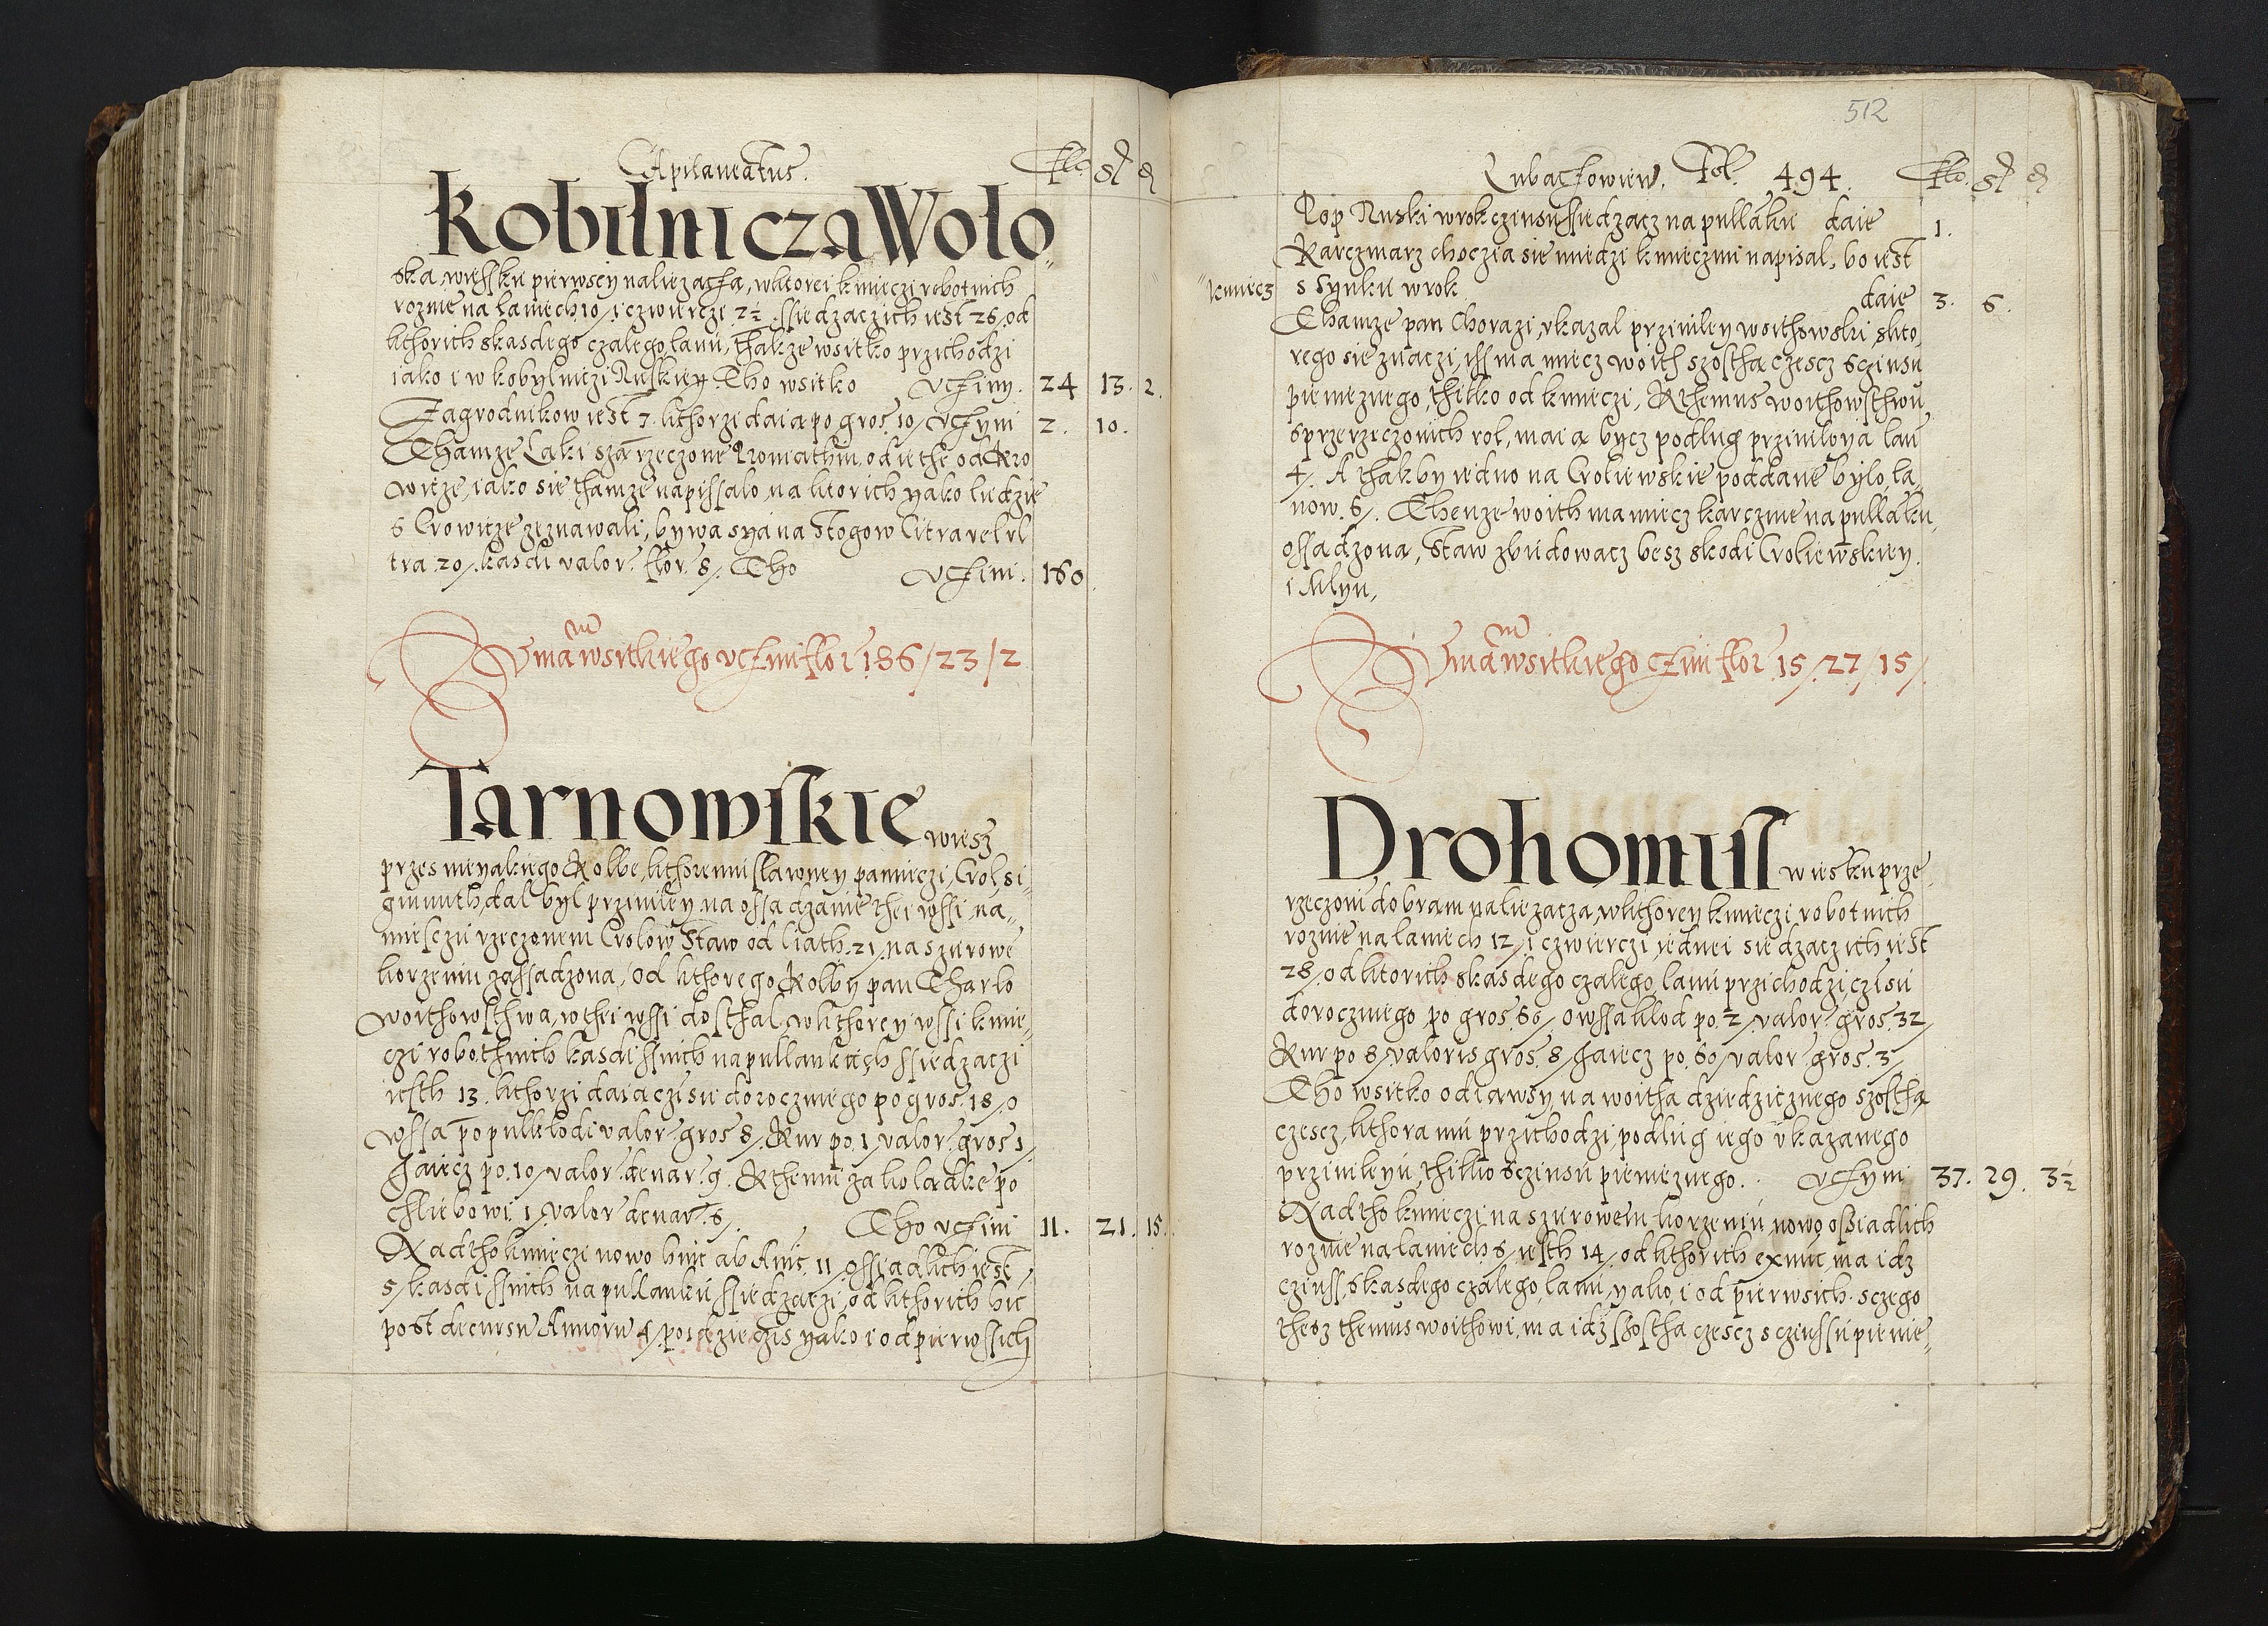 Capitaneatus. Flo. gr. d.
Kobilnicza Woło„
ska, wiessku pierwsey naliezacza, wktorei kmieczi robotnich
rozmie na laniech 10/ i czwierczi 2½ ssiedzaczich iest 26/ od
kthorich skasdego czalego lanu, thakze wsitko przichodzi
iako i w kobylniczi Ruskiey. Tho wsitko uczini. 24 13. 2.
Zagrodnikow iest 7. kthorzi daia po gros. 10/ uczyni 2. 10.
Thamze Laki sza rzeczone od iethe od Kro
wicze, iako sie thamze napissalo, na ktorich yako liudzie
s Crowicze zeznawali, bywa syana stogow Citra vel vl
tra 20/ kasdi valor. flor. 8/. Tho uczini. 160
Suma wsitkiego uczini flor 186/23/2
Tarnowskie wiesz
przes nieyakiego Kolbe, kthoremu slawney pamieczi, Crol Si„
gmunth, dal byl przimiley na ossadzanie thei wssi, na„
miesczu rzeczonem Crolow Staw od liath. 21. na szurowe
korzeniu zassadzona, Od kthorego Kolby pan Tharlo
woithowsthwa, w thei wssi dosthal, wkthorey wssi kmie„
czi robothnich kasdi ssnich na pullankuch ssiedzaczi
iesth 13. kthorzi daia czisu doroczniego po gros. 18/ o
wssa po pulklodi valor. gros. 8/. Kur po. 1 valor. gros. 1/
Jaiecz po. 10/ valor. denar. 9. Kthemu za koladke po
chliebowi. 1 valor denar. 6/. Tho uczini 11. 21. 15.
Nad tho kmieczi nowo huic ab Anis. 11 ossiadlich iest
5/ kasdi ssnich na pullanku ssiedzaczi, od kthorich hic
post decursu Annoru 4/ poidzie czis yako i od pierwssich
512
Lubaczowien. Fol. 494. Flo. gr. d.
Pop Ruski wrok czinsu ssiedzacz na pullanku daie 1.
Karczmarz choczia sie miedzi kmieczmi napisal, bo iest
"kmiecz s synku wrok daie 3. 6.
Thamze pan Chorazi, ukazal przimiley woithowski, skto„
rego sie znaczi, iss ma miecz woith szostha czescz s czinsu
pienieznego, thilko od kmieczi, Kthemus woithowsthwu
sprzerzeczonich rol, maia bycz podlug przimiloya lan
4/. A thak by iedno na Croliewskie poddane bylo, la„
now. 6/. Thenze woith ma miecz karczme na pullanku,
ossadzona, Staw zbudowacz besz skodi Croliewskiey.
i Mlyn,
Suma wsitkiego czini flor 15/. 27/ 15/.
Drohomisl wiesku prze„
rzeczoni dobram naliezacza, wkthorey kmieczi robotnich
rozmie na laniech 12/ i czwierczi iednei siedzaczich iest
28/ od ktorich skasdego czalego, lanu przichodzi, czisu
doroczniego po gros. 66/ owssa klod po. 2/ valor. gros. 32/
Kur po 8/ valoris gros. 8/ Jaiecz po. 60/ valor. gros. 3/
Tho wsitko odiawsy, na woitha dziedzicznego szostha
czescz, kthora mu przichodzi, podlug iego ukazanego
przimileyu, thilko s czinsu pienieznego. uczyni 37. 29. 3½
Nad tho kmieczi na szurowem korzeniu nowo ossiadlich
rozmie na laniech. 6/ iesth 14/ od kthorich ex nunc, ma idz
czinss, skasdego czalego, lanu, yako, i od pierwsich. sczego
thesz themus woithowi, ma idz szostha czescz s czinssu pienie„